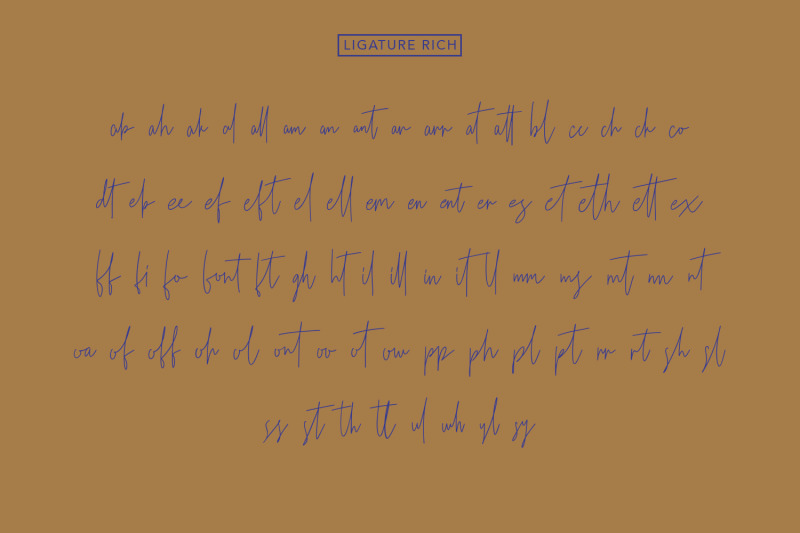 LIGATURE RICH
ap ah ak al all am an ant ar arr at att bl cc ch ck co
dt ep ee ef eft el ell em en ent er es et eth ett ex
ff fi fo font ft gh ht il ill in it ll mm ms mt nn nt
oa of off oh ol ont oo ot ow pp ph pl pt rr rt sh sl
ss st th tt ul wh yl sy